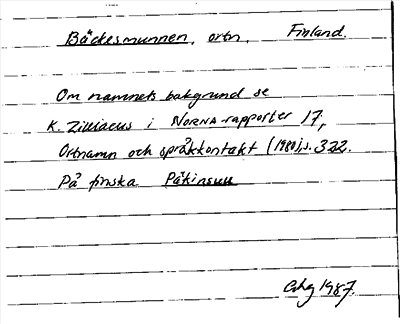 Bäckesmunnen, ortn, Finland.
Om namnets bakgrund se
K. Zilliacus i NORNA-rapporter 17,
Ortnamn och språkkontakt (1980), s. 322.
På finska Påkinsuu
1987.